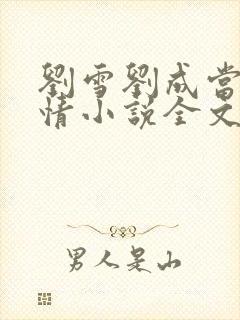 劉雪劉成當
情小說全文
男人是山